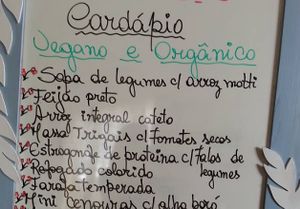 Cardápio
Vegano e Orgânico
Sopa de legumes c/ arroz motti
Feijão preto
Arroz integral cateto
Massa Trigais c/ tomates secos
Estrogonofe de proteína c/ talos de
legumes
Refogado colorido
Farofa temperada
Mini cenouras c/ alho poró